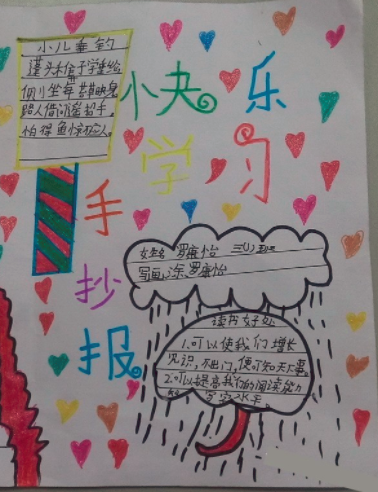 小儿垂钓
蓬头稚子学垂纶
坐莓苔草映身
路人借问遥招手,
怕得鱼惊不应人。
小快乐
学习
手
抄
报
姓名 罗 怡 三(1)班
写画涂罗 怡
读书好处
1.可以使我们增长
见识,不出门,便可知天下事。
2.可以提高我们的阅读能力
写字水平